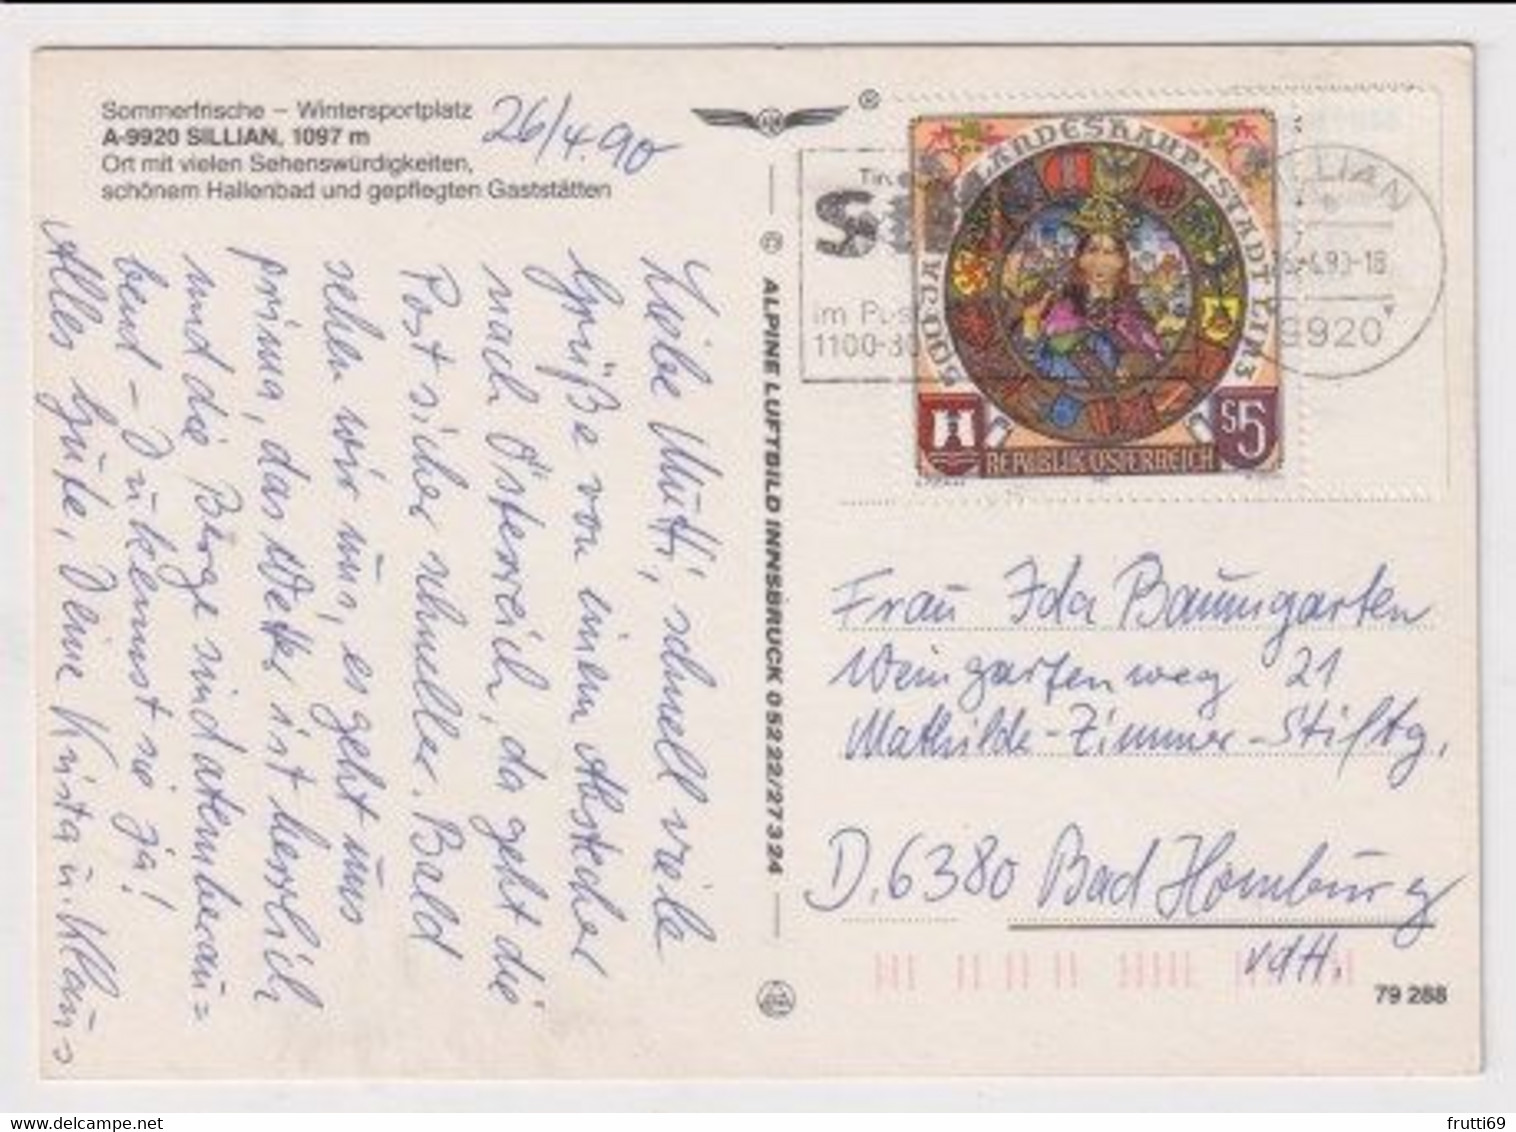 Sommerfrische – Wintersportplatz
A-9920 SILLIAN, 1097 m
Ort mit vielen Sehenswürdigkeiten,
schönem Hallenbad und gepflegten Gaststätten
26/4.90
Liebe Mutti, schnell viele
Grüße von einem Abstecher
nach Österreich, da geht die
Post sicher schneller. Bald
sehen wir uns, es geht uns
prima, das Wetter ist herrlich
und die Berge sind atemberau=
bend – Du kennst sie ja!
Alles Gute, Deine Krista u. Klaus
® 
© ALPINE LUFTBILD INNSBRUCK 05222/27324
im Pus
1100-30
500 JAHRE LANDESHAUPTSTADT LINZ
S5
REPUBLIK ÖSTERREICH
ILLIAN
6.-4.90-18
9920
Frau Ida Baumgarten
Weingartenweg 21
Mathilde-Zimmer-Stiftg.
D.6380 Bad Homburg
vdH.
79 288
frutti69